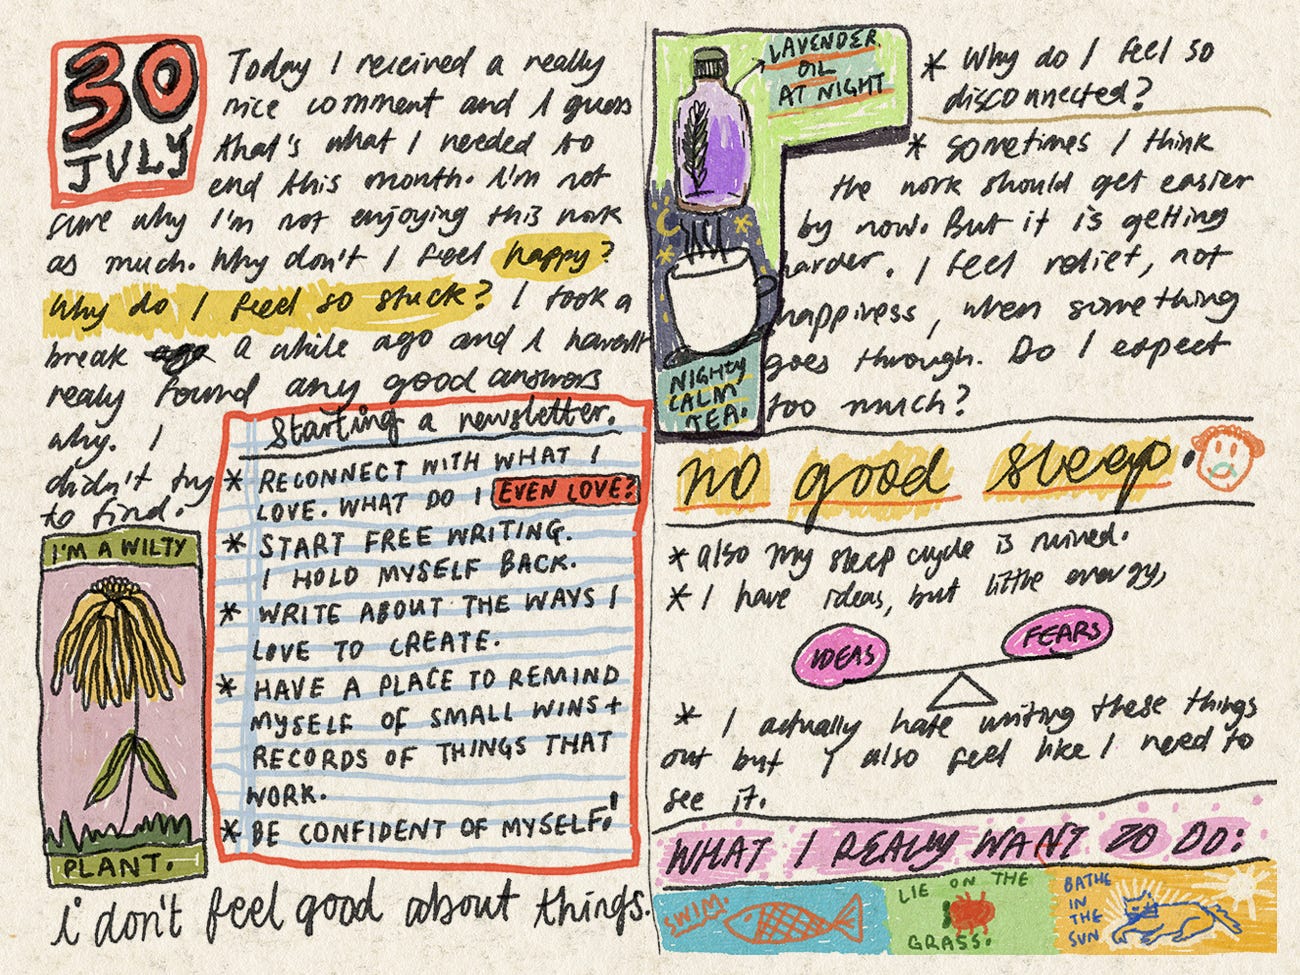 30
JULY
Today I received a really
nice comment and I guess
that's what I needed to
end this month. I'm not
sure why I'm not enjoying this work
as much. Why don't I feel happy?
Why do I feel so stuck? I took a
break ago a while ago and I haven't
realy found any good answers
why. I
didn't try
to find.
Starting a newsletter.
* RECONNECT WITH WHAT I
LOVE. WHAT DO I EVEN LOVE?
* START FREE WRITING.
I HOLD MYSELF BACK.
* WRITE ABOUT THE WAYS I
LOVE TO CREATE.
* HAVE A PLACE TO REMIND
MYSELF OF SMALL WINS +
RECORDS OF THINGS THAT
WORK.
* BE CONFIDENT OF MYSELF!
I'M A WILTY
PLANT.
i don't feel good about things.
LAVENDER
OIL
AT NIGHT
NIGHTY
CALM
TEA.
* Why do I feel so
disconnected?
* sometimes I think
the work should get easier
by now. But it is getting
harder. I feel relief, not
happiness, when something
goes through. Do I expect
too much?
no good sleep.
* also my sleep cycle is ruined.
* I have ideas, but little energy,
IDEAS
FEARS
* I actually hate writing these things
out but I also feel like I need to
see it.
WHAT I REALLY WANT TO DO:
SWIM.
LIE ON THE
GRASS.
BATHE
IN
THE
SUN